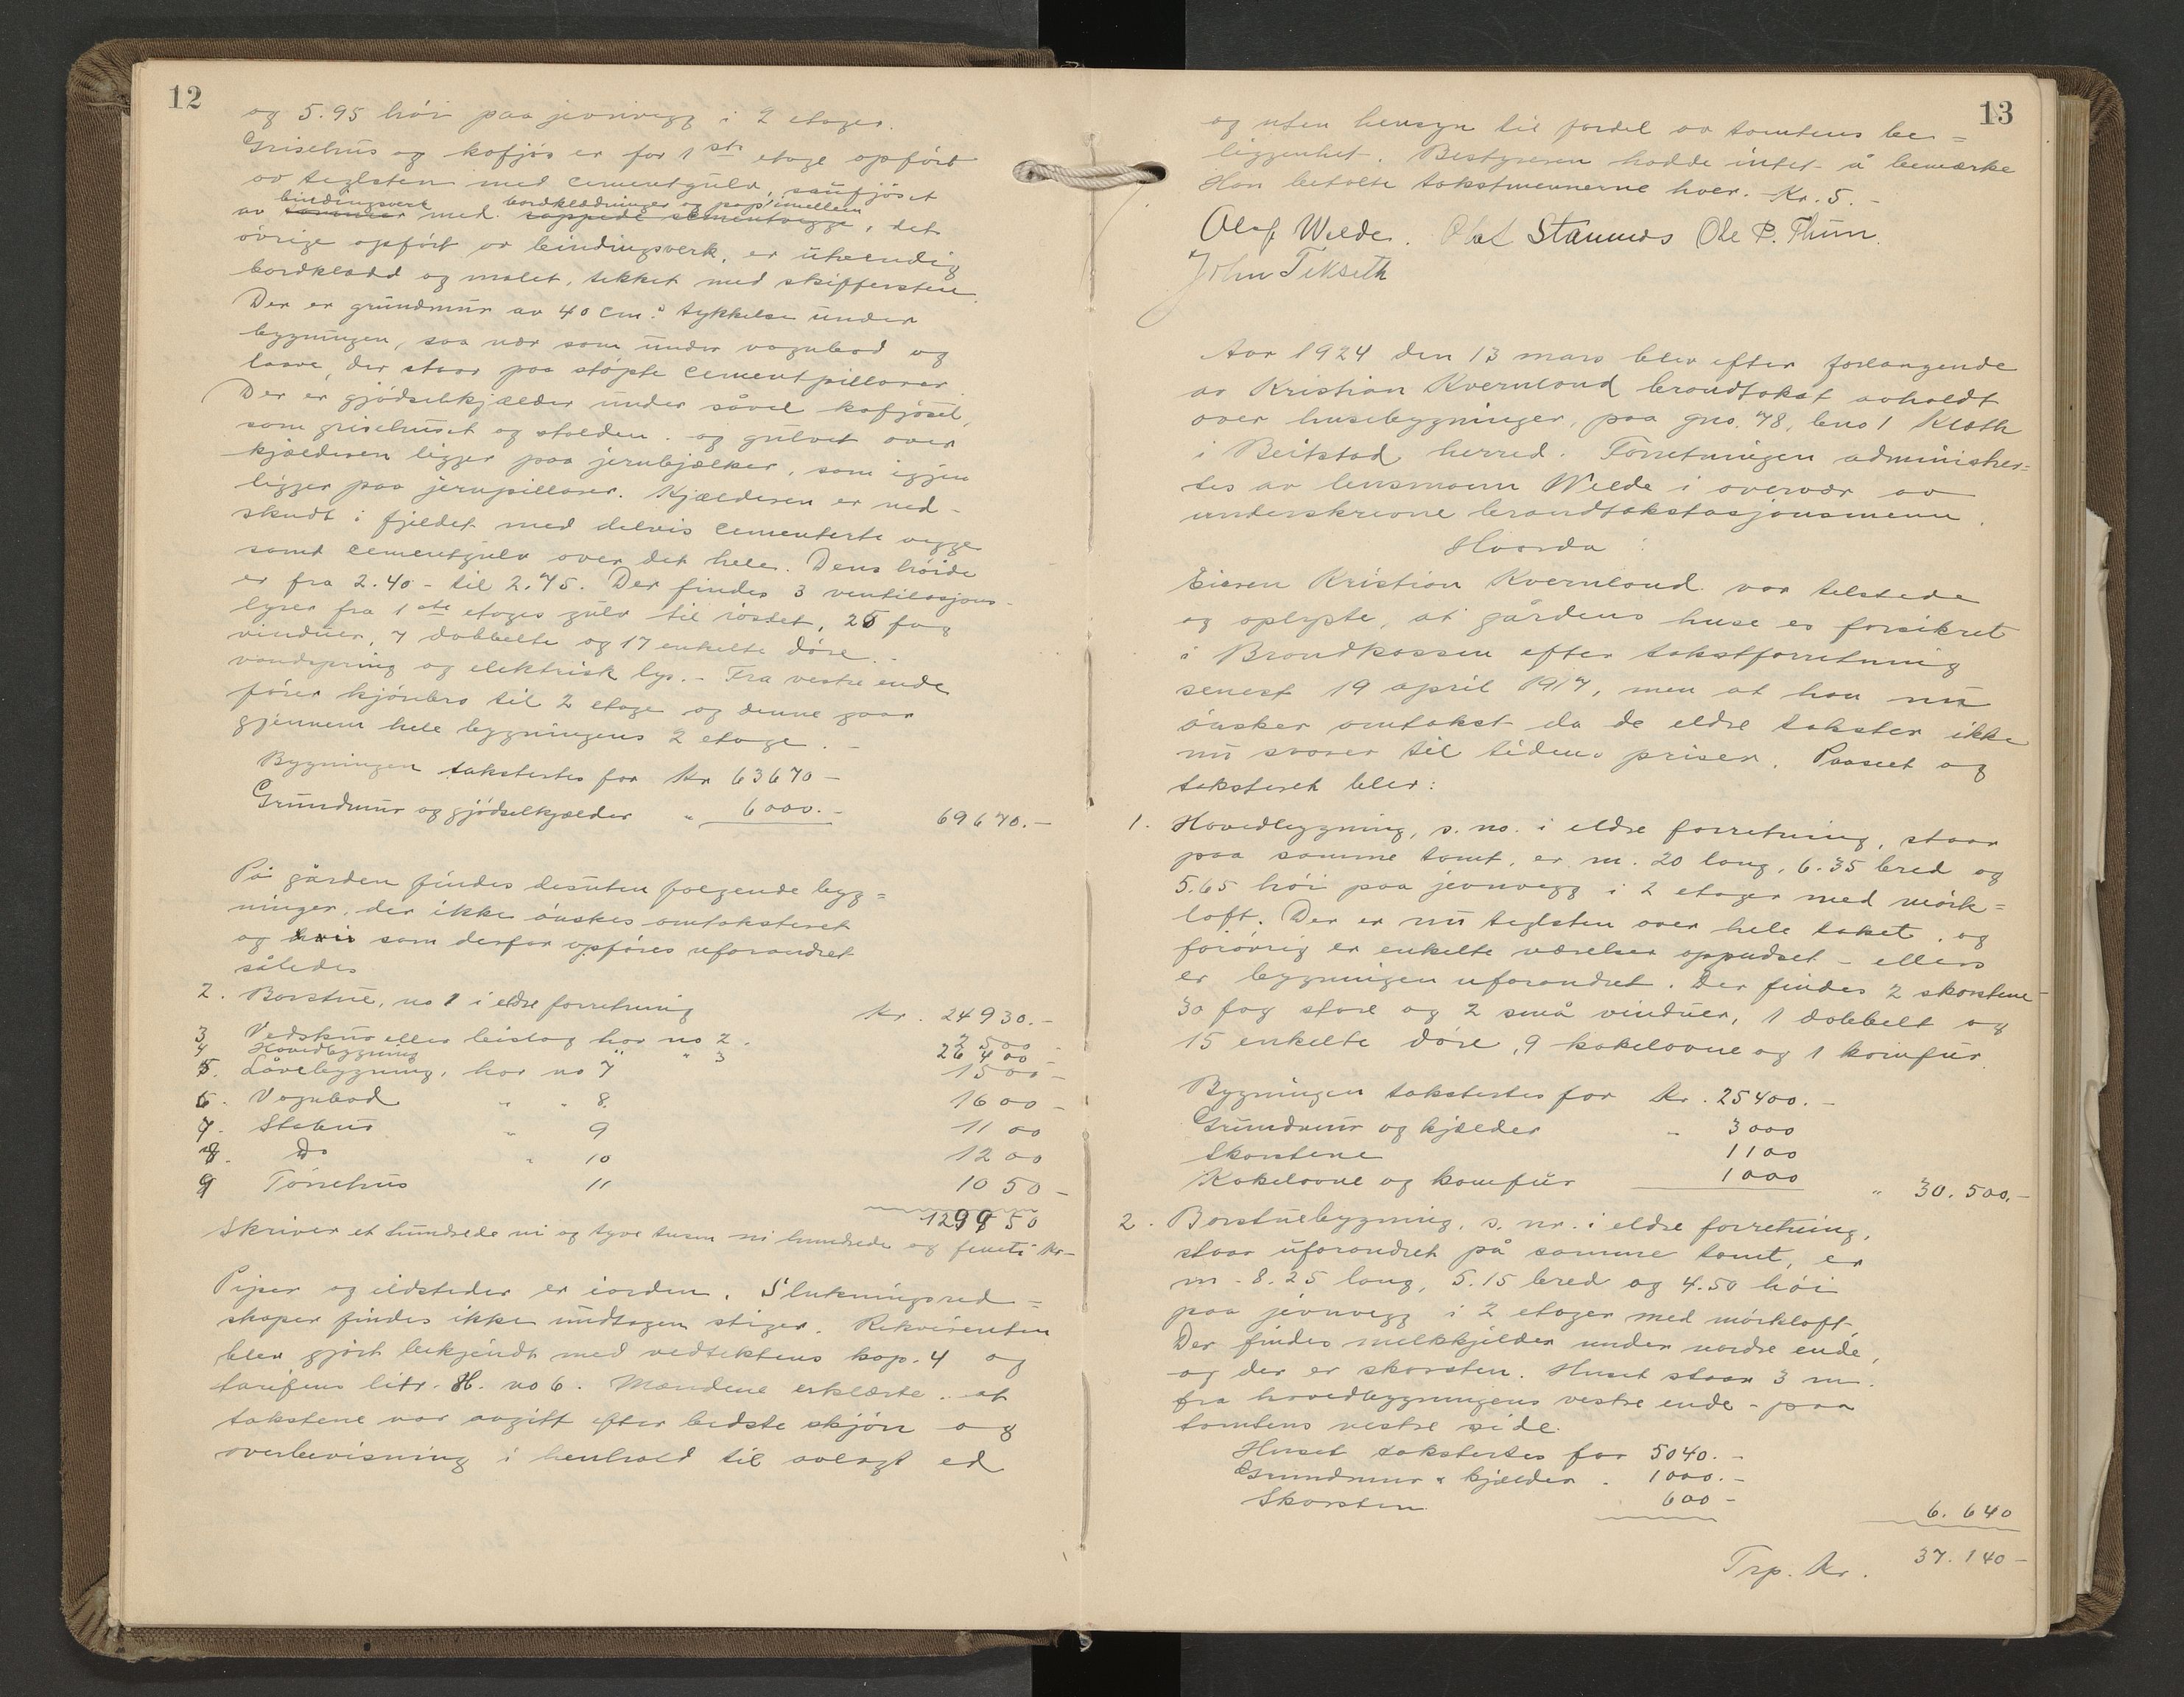 12
og 5.95 höi paa jevnvegg i 2 etager.
Grisehus og kofjös er for 1ste etage opfört
av teglsten med cementgulv, saufjöset
bindingsverk bordklædninger og pap imellem
av med cementvegge, det
övrige opfört av bindingsverk, er utvendig
bordklædd og malet, tekket med skiffersten.
Der er grundmur av 40 cm.s tykkelse under
bygningen, saa nær som under vognbod og
laave, der staar paa stöpte cementpillarer
Der er gjödselkjælder under såvel kofjöset,
som grisehuset og stalden. og gulvet over
kjælderen ligger paa jernbjælker, som igjen
ligger paa jernpillarer. Kjælderen er ned-
skudt i fjeldet med delvis cementerte vegge
samt cementgulv over det hele. Dens höide
er fra 2.40 - til 2.75. Der findes 3 ventilasjons-
lyrer fra 1ste etages gulv til röstet, 25 fag
vinduer, 7 dobbelte og 17 enkelte döre.
vandspring og elektrisk lys. - Fra vestre ende
förer kjörebro til 2 etage og denne gaar
gjennem hele bygningens 2 etage. -
Bygningen takstertes for Kr 63670 -
Grundmur og gjödselkjælder " 6000. - 69670. -
På gården findes desuten følgende byg=
ninger, der ikke önskes omtakseret
og som derfor opföres uforandret
således
2. Borstue, no 1 i eldre forretning Kr. 24930. -
3 Vedskur eller leistog har no 2. 2500 -
4 Hovedbygning " " 3 26400 -
5. Låvebygning, har no 7 1500 -
6. Vognbod " " 8. 1600 -
7. Stabur " 9 1100
8. Do " 10 1200
9 Törrehus 11 1050 -
129950
Skriver et hundrede ni og tyve tusen ni hundrede og femti kr -
Piper og ildsteder er iorden. Slukningsred=
skaper findes ikke undtagen stiger. Rekvirenten
blev gjört bekjendt med vedtektens kap. 4 og
tarifens litr. H. no 6. Mændene erklærte. at
takstene var avgitt efter bedste skjön og
overbevisning i henhold til avlagt ed
13
og uten hensyn til fordel av tomtens be=
liggenhet. Bestyreren hadde intet å bemærke
Han betalte takstmennerne hver. Kr. 5. -
Olaf Welde. Olaf Stamnes Ole P. Thun.
John Tekseth
Aar 1924 den 13 mars blev efter forlangende
av Kristian Kvernland brandtakst avholdt
over husebygninger, paa gno. 78, bno 1 Kløth
i Beitstad herred. Forretningen administrer=
tes av lensmann Welde i overvær av
underskrevne brandtakstasjonsmenn.
Hvorda:
Eieren Kristian Kvernland var telstede
og oplyste, at gårdens huse er forsikret
i Brandkassen efter takstforretning
senest 19 april 1917, men at han nu
önsker omtakst da de eldre takster ikke
nu svarer til tidens priser. Paaseet og
taksteret blev:
1. Hovedbygning, s. no. i eldre forretning, staar
paa samme tomt, er m. 20 lang, 6.35 bred og
5.65 höi paa jevnvegg i 2 etager med mörk=
loft. Der er nu teglsten over hele taket, og
forövrig er enkelte værelser oppudset - ellers
er bygningen uforandret. Der findes 2 skorstene -
30 fag store og 2 små vinduer, 1 dobbelt og
15 enkelte döre, 9 kakelovne og 1 komfur.
Bygningen takstertes for Kr. 25400. -
Grundmur og kjælder " 3000
Skorstene 1100
Kakelovne og komfur 1000 " 30.500. -
2. Borstuebygning, s. nr. i eldre forretning,
staar uforandret på samme tomt, er
m - 8.25 lang, 5.15 bred og 4.50 höi
paa jevnvegg i 2 etager med mörkloft,
Der findes melkkjelder under nordre ende,
og der er skorsten. Huset staar 3 m.
fra hovedbygningens vestre ende - paa
tomtens vestre side.
Huset takstertes for 5040. -
Grundmur & kjælder . 1000. -
Skorsten 600 - 6.640
Trp. Kr. 37.140 -